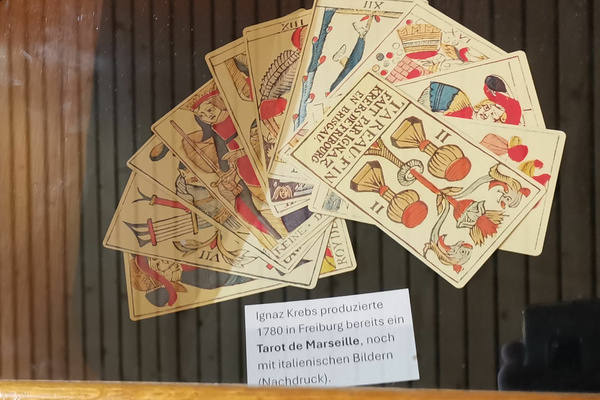 XIII
XII
XVI
TAREAU FIN
FAIT PAR IGNAZ
KREBS DE FRIBOURG
EN BRISGAU
II
II
VII
Ignaz Krebs produzierte
1780 in Freiburg bereits ein
Tarot de Marseille, noch
mit italienischen Bildern
(Nachdruck).